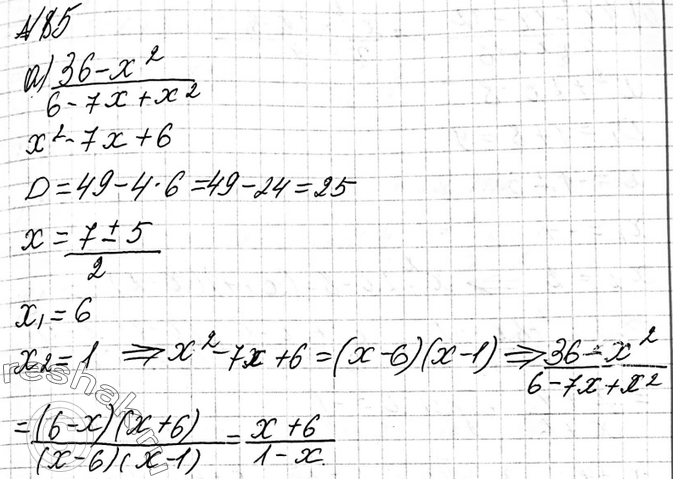 №85
а) (36-x²)/(6-7x+x²)
x²-7x+6
D=49-4·6=49-24=25
x=(7±5)/2
x₁=6
x₂=1 ⇒ x²-7x+6=(x-6)(x-1) ⇒ (36-x²)/(6-7x+x²)
=((6-x)(x+6))/((x-6)(x-1))=(x+6)/(1-x).
reshak.ru